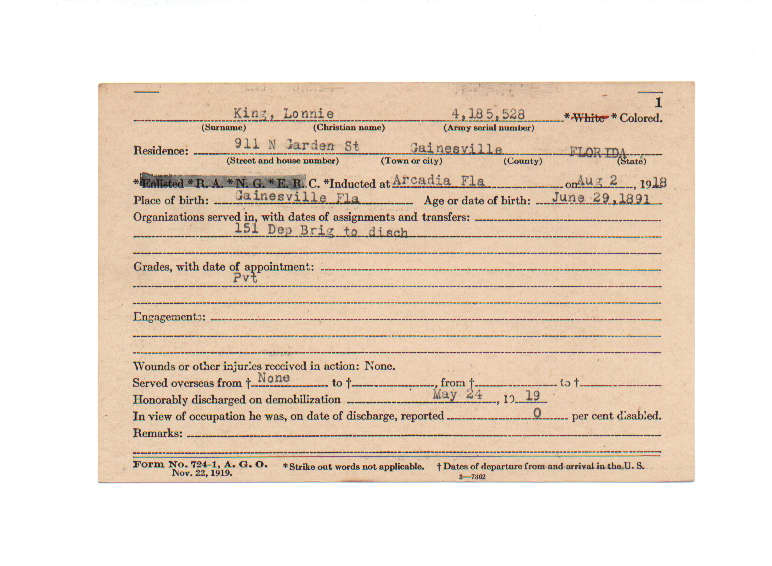 1
King, Lonnie 4,185,528 *White *Colored.
(Surname) (Christian name) (Army serial number)
Residence: 911 N Garden St Gainesville FLORIDA
(Street and house number) (Town or city) (County) (State)
*Enlisted *R. A. *N. G. *E. R. C. *Inducted at Arcadia Fla on Aug 2, 1918
Place of birth: Gainesville Fla Age or date of birth: June 29,1891
Organizations served in, with dates of assignments and transfers:
151 Dep Brig to disch
Grades, with date of appointment:
Pvt
Engagements:
Wounds or other injuries received in action: None.
Served overseas from † None to †, from † to †
Honorably discharged on demobilization May 24, 19 19
In view of occupation he was, on date of discharge, reported 0 per cent disabled.
Remarks:
Form No. 724-1, A. G. O. *Strike out words not applicable. † Dates of departure from and arrival in the U. S.
Nov. 22, 1919. 3—7302